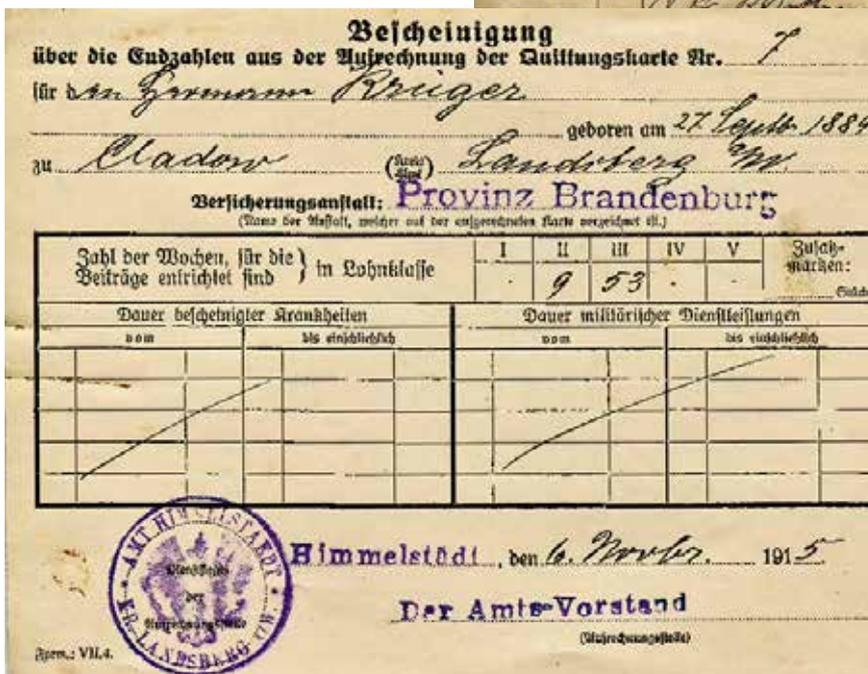 Bescheinigung
über die Endzahlen aus der Aufrechnung der Quittungskarte Nr. 7
für den Hermann Krüger
geboren am 27. Septb. 1884
zu Cladow (Kreis Amt) Landsberg a/W.
Versicherungsanstalt: Provinz Brandenburg
(Name der Anstalt, welcher auf der aufgerechneten Karte verzeichnet ist.)
Zahl der Wochen, für die Beiträge entrichtet sind } in Lohnklasse
I II III IV V Zusatzmarken:
. 9 53 . . Stück
Dauer bescheinigter Krankheiten Dauer militärischer Dienstleistungen
vom bis einschließlich vom bis einschließlich
AMT HIMMELSTAEDT
KR. LANDSBERG
Dienstsiegel
der
Aufrechnungsstelle
Himmelstädt, den 6. Novbr. 1915
Der Amts-Vorstand
(Aufrechnungsstelle)
Form.: VII.4.